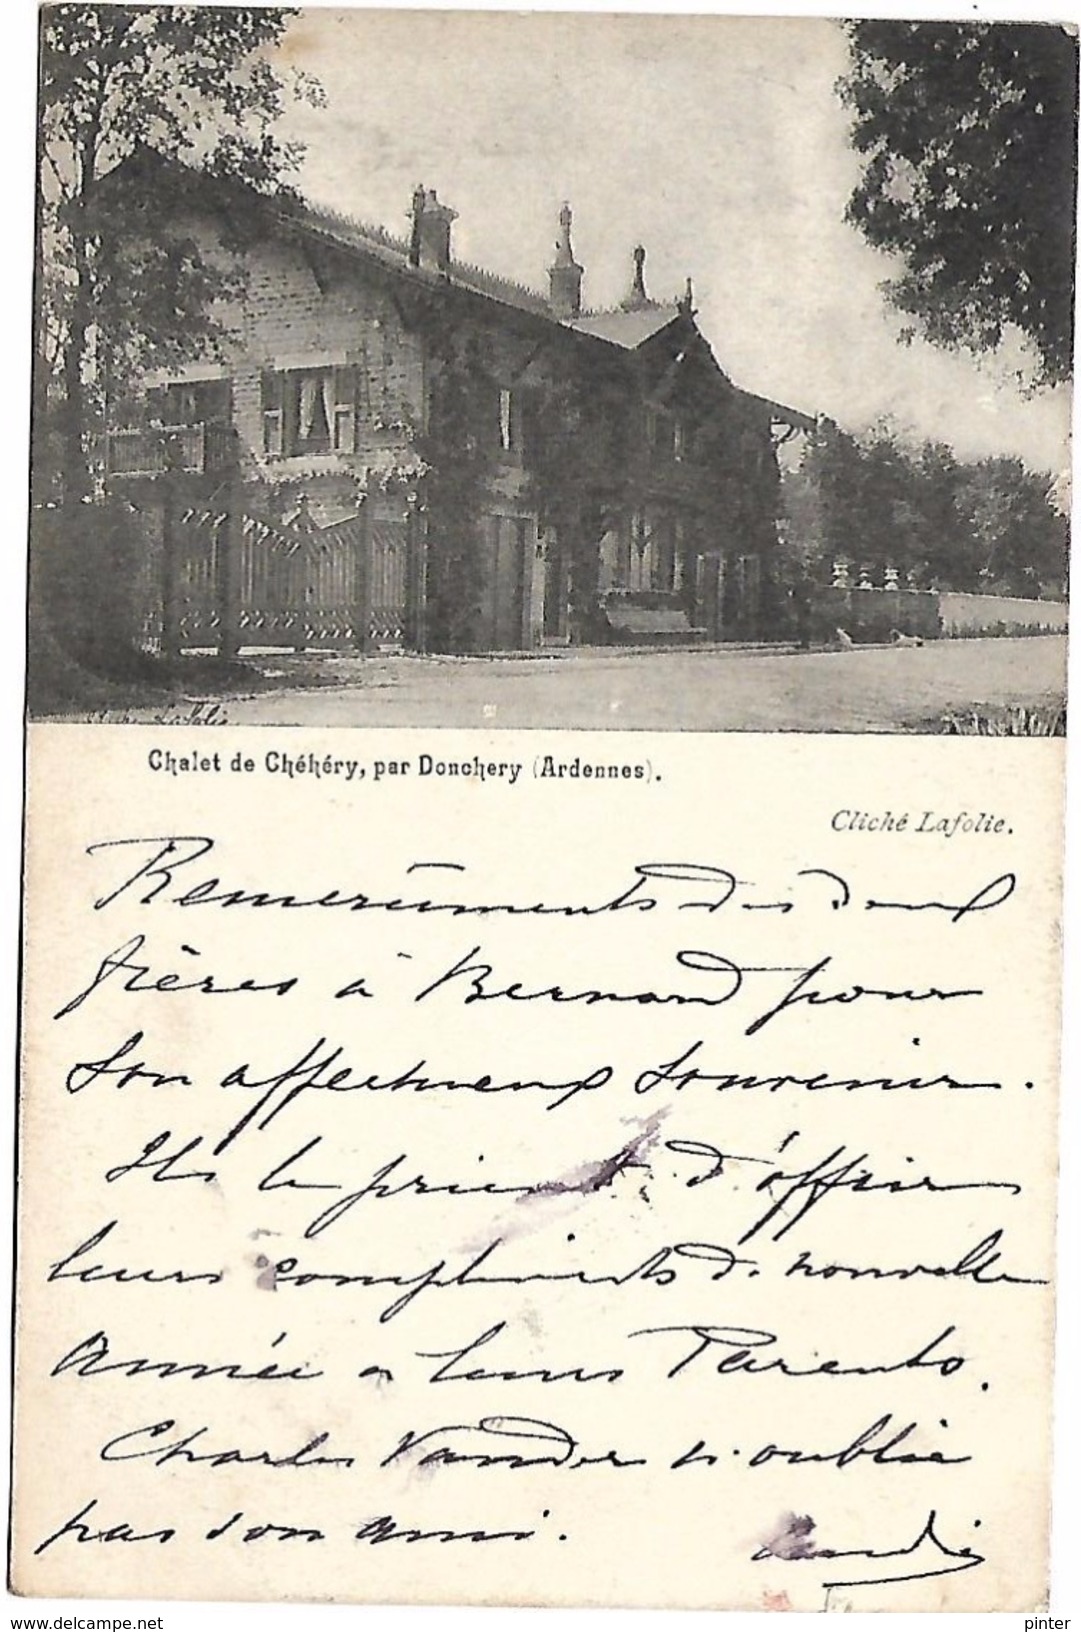 Cliché Lafolie
Chalet de Chéhéry, par Donchery (Ardennes).
Cliché Lafolie.
Remerciments des deux
frères à Bernard pour
son affectueux souvenir.
Ils le prient d'offrir
leurs compliments de nouvelle
année a leurs Parents.
Charles Vander n'oublie
pas son ami.
delcampe.net
pinter